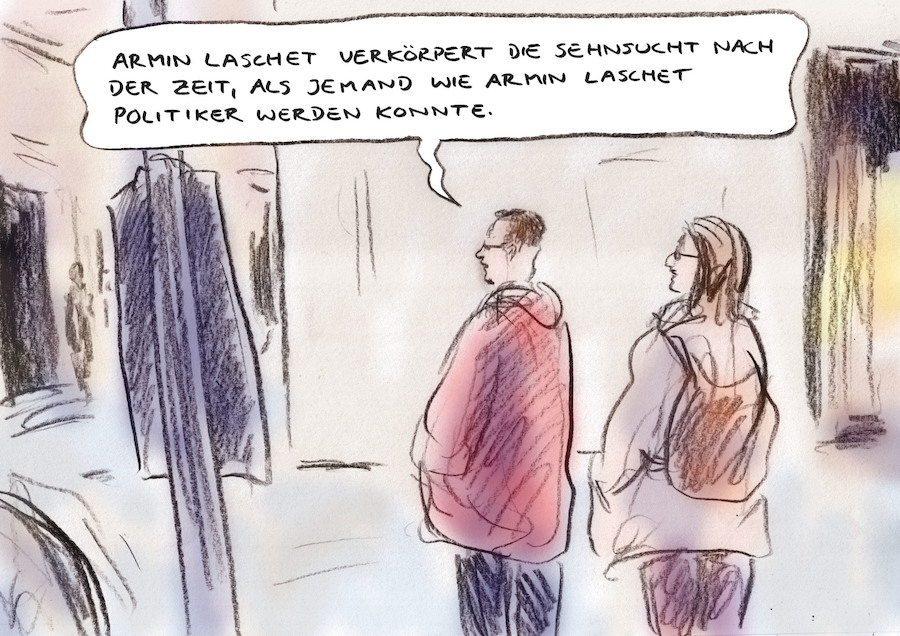 ARMIN LASCHET VERKÖRPERT DIE SEHNSUCHT NACH
DER ZEIT, ALS JEMAND WIE ARMIN LASCHET
POLITIKER WERDEN KONNTE.